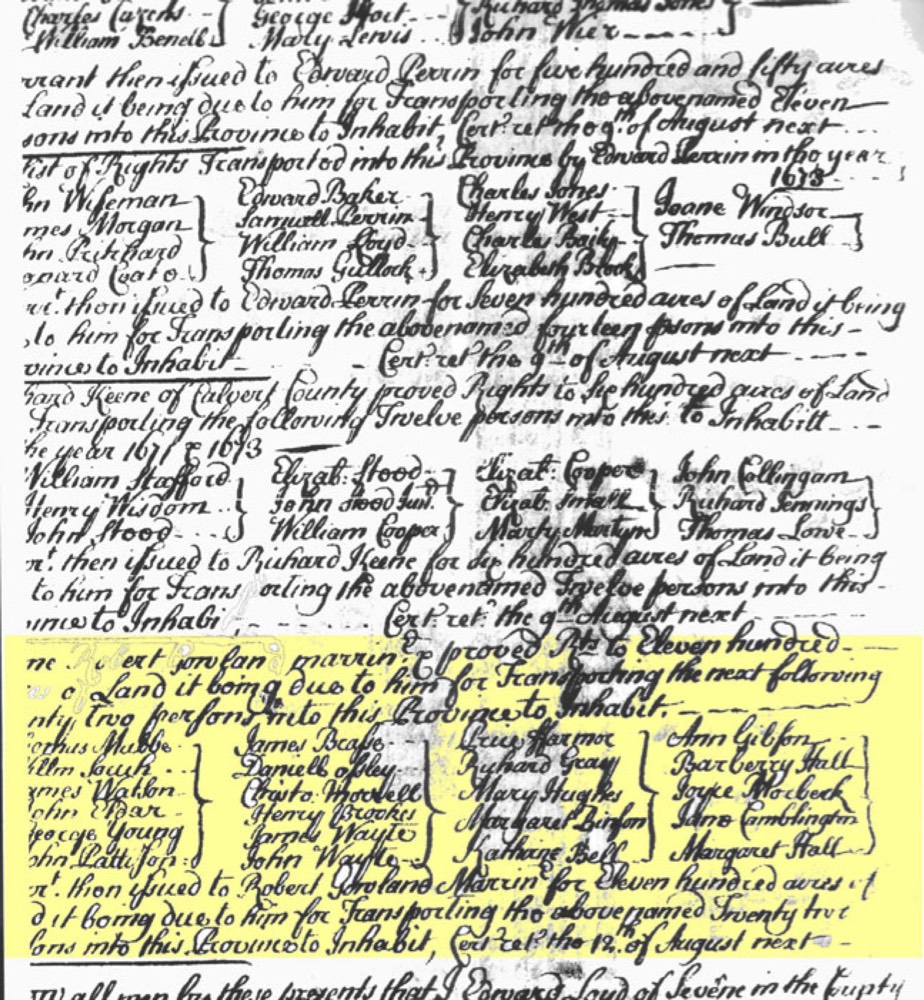 Charles Curens George Hoit Richard Thomas Jones
William Benell Mary Lewis John Wier
rrant then issued to Edward Perrin for five hundred and fifty acres
Land it being due to him for Transporting the abovenamed Eleven
sons into this Province to Inhabit, Cert: ret the 9th of August next
ist of Rights Transported into this Province by Edward Perrin in the year
1673
hn Wiseman Edward Baker Charles Jones Joane Windsor
mes Morgan Samuell Perrin Henry West Thomas Bull
hn Pritchard William Loyd Charles Baily
onard Coate Thomas Gullock Elizabeth Block
rt. then issued to Edward Perrin for Seven hundred acres of Land it being
to him for Transporting the abovenamed fourteen psons into this
vince to Inhabit Cert: ret the 9th of August next
hard Keene of Calvert County proved Rights to Six hundred acres of Land
Transporting the following Twelve persons into this to Inhabitt
he year 1671 & 1673
William Stafford Elizab: Stood Elizat: Cooper John Collingam
Henry Wisdom John Stood Jun: Elizab: Small Richard Jennings
John Stood William Cooper Mary Martyn Thomas Lowe
rt. then issued to Richard Keene for six hundred acres of Land it being
to him for Trans orting the abovenamed Twelve persons into this
vince to Inhabi Cert: ret: the 9th August next
me Robert marrin proved Rts to Eleven hundred
o Land it being due to him for Transporting the next following
nty two persons into this Province to Inhabit.
James Price Harmor Ann Gibson
Daniell Richard Gray Barberry Hall
ames Watson Christo: Morrell Mary Hughes Joyce
ohn Henry Brookes Margaret Binson Jane Camblington
George Young James Wayte Katharine Bell Margaret Hall
ohn Pattison John Wayte
rt. then issued to Robert Gowland Marrin for Eleven hundred acres of
d it being due to him for Transporting the abovenamed Twenty two
sons into this Province to Inhabit, Cert: ret: the 12th of August next
w all men by these presents that I Edward Loyd of Severne in the County